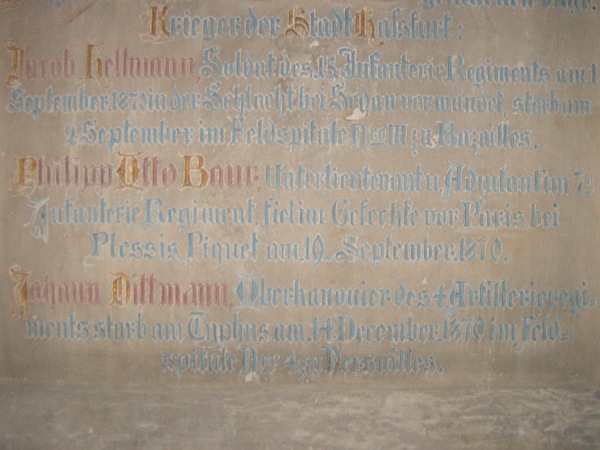 Krieger der Stadt Hassfurt:
Jacob Hellmann, Soldat des 15. Infanterie Regiments am 1
September 1870 in der Schlacht bei Sedan verwundet, starb am
2 September im Feldspitale Nro III zu Bazeilles.
Philipp Otto Baur, Unterlieutenant u. Adjutant im 12
Infanterie Regiment, fiel im Gefechte vor Paris bei
Plessis Piquet am 19. September 1870.
Johann Dittmann, Oberkanonier des 4 Artillerieregi-
ments starb am Typhus am 14 December 1870 im Feld-
spitale Nro 4 zu Versailles.